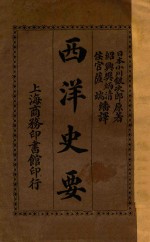 日本小川銀次郎原著
紹興樊炳清
侯官薩端
繙譯
西洋史要
上海商務印書館印行